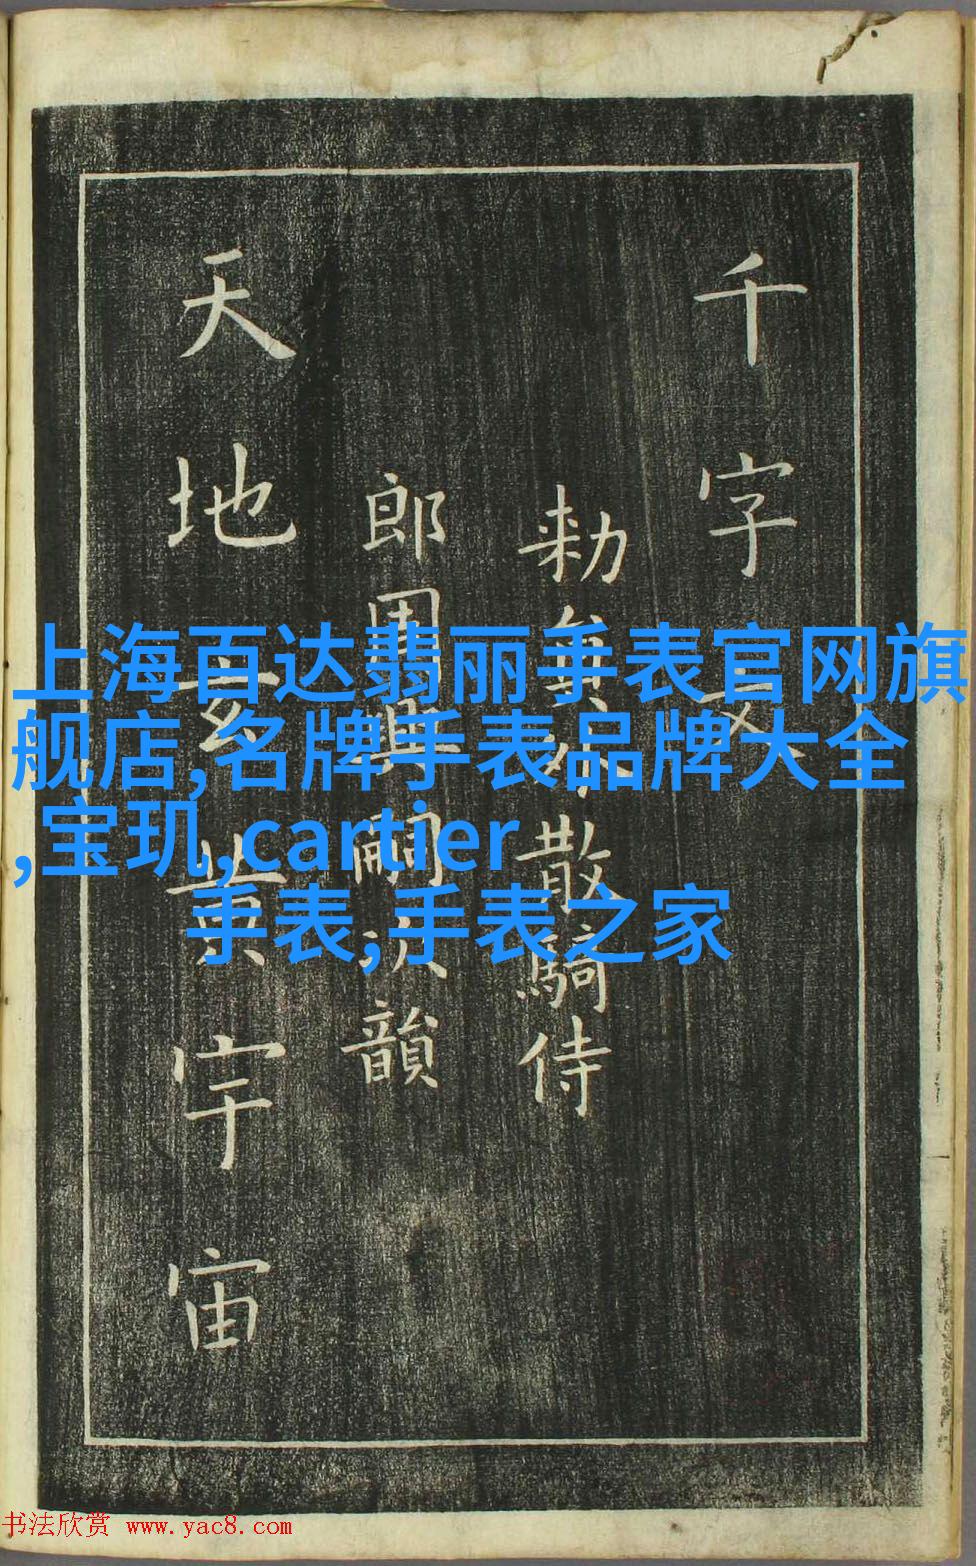 千字文
勑員外散騎侍
郎周興嗣次韻
天地玄黃宇宙
上海百达翡丽手表官网旗
舰店,名牌手表品牌大全
,宝玑,cartier
手表,手表之家
书法欣赏 www.yac8.com